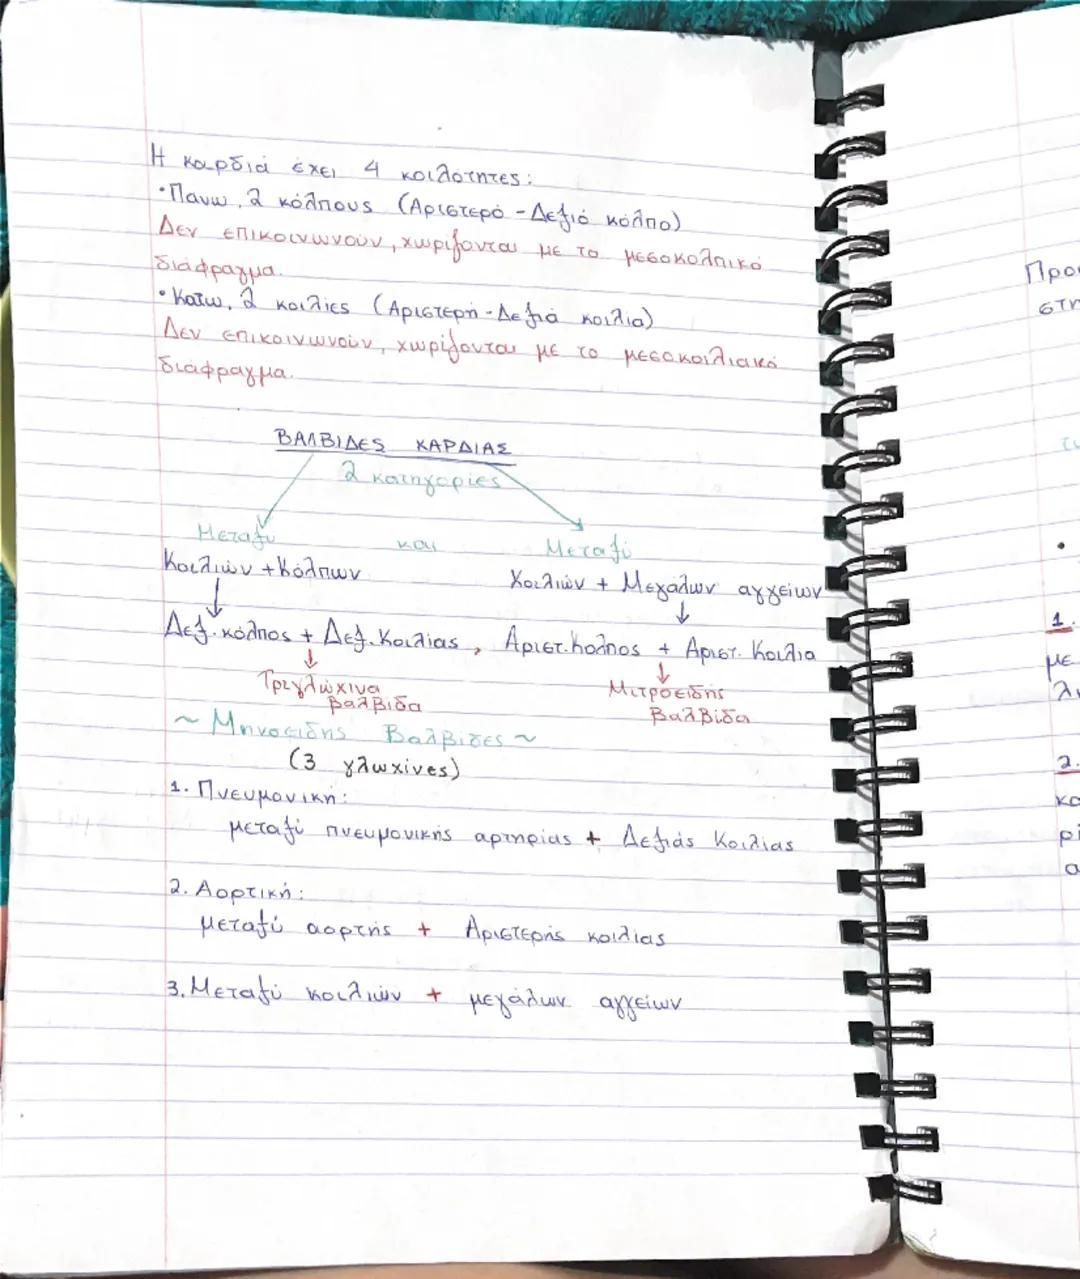 Η καρδιά έχει 4 κοιλότητες:
•Πανω, 2 κόλπους (Αριστερό - Δεξιό κόλπο)
Δεν επικοινωνούν, χωρίζονται με το μεσοκολπικό
διάφραγμα.
•Κατω, 2 κοιλίες (Αριστερή - Δεξιά κοιλία)
Δεν επικοινωνούν, χωρίζονται με το μεσοκοιλιακό
διάφραγμα.
ΒΑΛΒΙΔΕΣ ΚΑΡΔΙΑΣ
2 κατηγορίες
Μεταξύ και Μεταξύ
Κοιλιών + Κόλπων Κοιλιών + Μεγάλων αγγείων
Δεξ. κόλπος + Δεξ. Κοιλίας, Αριστ. Κολπος + Αριστ. Κοιλία
Τριγλώχινα Μιτροειδής
βαλβίδα Βαλβίδα
~ Μηνοειδής Βαλβίδες ~
(3 γλωχίνες)
1. Πνευμονική:
μεταξύ πνευμονικής αρτηρίας + Δεξιάς Κοιλίας
2. Αορτική:
μεταξύ αορτής + Αριστερής κοιλίας
3. Μεταξύ κοιλιών + μεγάλων αγγείων
Προ
στη
1.
με
2.
κο
ρί
α